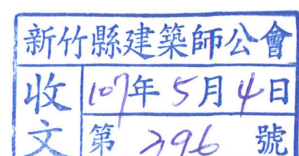 新竹縣建築師公會
收文
107年5月4日
第 396 號